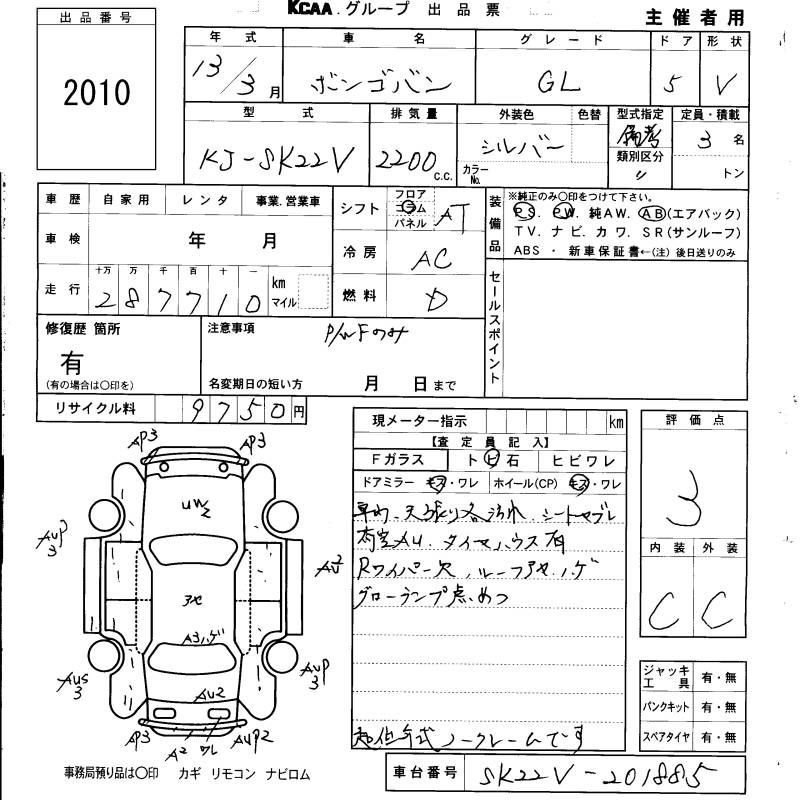 KCAA.グループ 出品票
主催者用
出品番号
2010
年式 車名 グレード ドア 形状
13/3月 ボンゴバン GL 5 V
型式 排気量 外装色 色替 型式指定 定員・積載
KJ-SK22V 2200 c.c. シルバー カラーNo. 備考 類別区分 〃 3名 トン
車歴 自家用 レンタ 事業.営業車
車検 年 月
走行 十万 万 千 百 十 一
287710 km マイル
シフト フロア コラム パネル AT
冷房 AC
燃料 D
装備品
※純正のみ〇印をつけて下さい。
PS. PW. 純AW. AB(エアバック)
TV. ナビ. カワ. SR(サンルーフ)
ABS ・ 新車保証書←(注) 後日送りのみ
セールスポイント
修復歴 箇所
有
(有の場合は〇印を)
注意事項 P/WFのみ
名変期日の短い方 月 日まで
リサイクル料 9750円
現メーター指示 km
【査定員記入】
Fガラス トビ石 ヒビワレ
ドアミラー キズ・ワレ ホイール(CP) キズ・ワレ
車内、天張り各汚れ シートヤブレ
荷室AU. タイヤハウス有
Rワイパー欠、ルーフアセ、ハゲ
グローランプ点めつ
他年式ノークレームです
評価点
3
内装 外装
C C
ジャッキ工具 有・無
パンクキット 有・無
スペアタイヤ 有・無
AP3 AP3
UW2
AUP3
アセ
A3ハゲ
AUS3 AUP3
AU2
AP3 A2 ワレ AUP2
事務局預り品は〇印 カギ リモコン ナビロム
車台番号 SK22V-201885